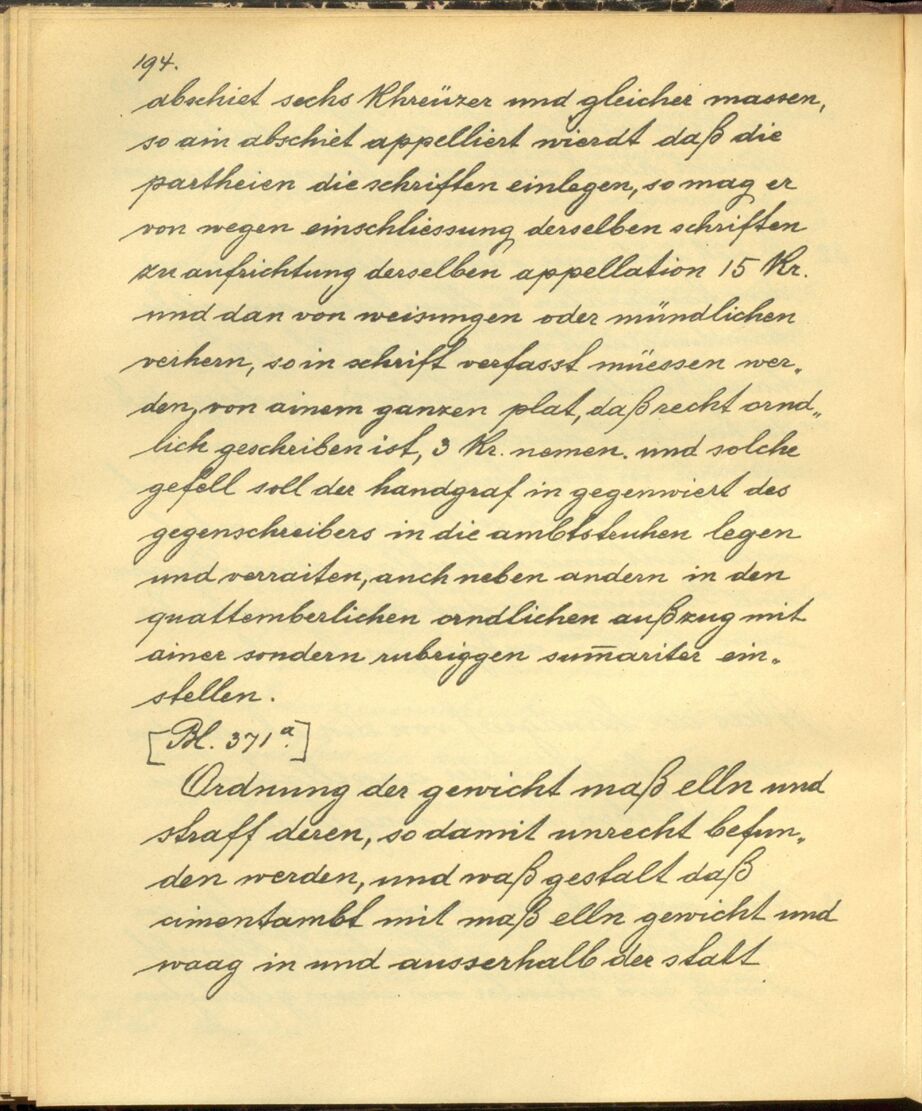 194.
abschiet sechs Khreüzer und gleicher massen,
so ain abschiet appelliert wierdt daß die
partheien die schriften einlegen, so mag er
von wegen einschliessung derselben schriften
zu aufrichtung derselben appellation 15 Kr.
und dan von weisungen oder mündlichen
verhern, so in schrift verfasst müessen wer„
den, von ainem ganzen plat, daß recht ornd„
lich geschriben ist, 3 Kr. nemen. und solche
gefell soll der handgraf in gegenwiert des
gegenschreibers in die ambtstruhen legen
und verraiten, auch neben andern in den
quattemberlichen orndlichen außzug mit
ainer sondern rubriggen sum̄ariter ein„
stellen.
[Bl. 371a.]
Ordnung der gewicht maß elln und
straff deren, so damit unrecht befun„
den werden, und waß gestalt daß
cimentambt mit maß elln gewicht und
waag in und ausserhalb der statt